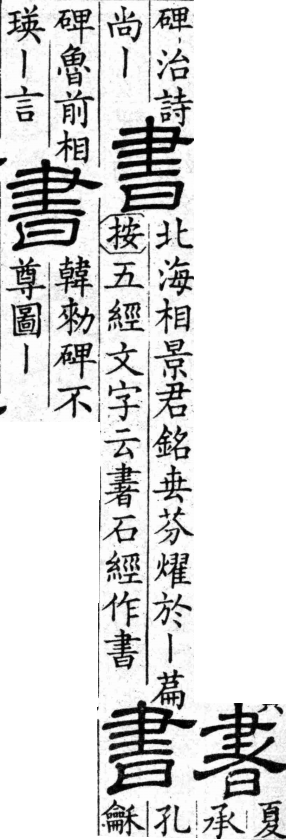 書
夏
承
碑治詩
尚丨
書
北海相景君銘垂芬耀於丨篇
按五經文字云𦘠石經作書
書
孔
龢
碑魯前相
瑛丨言
書
韓勑碑不
尊圖丨